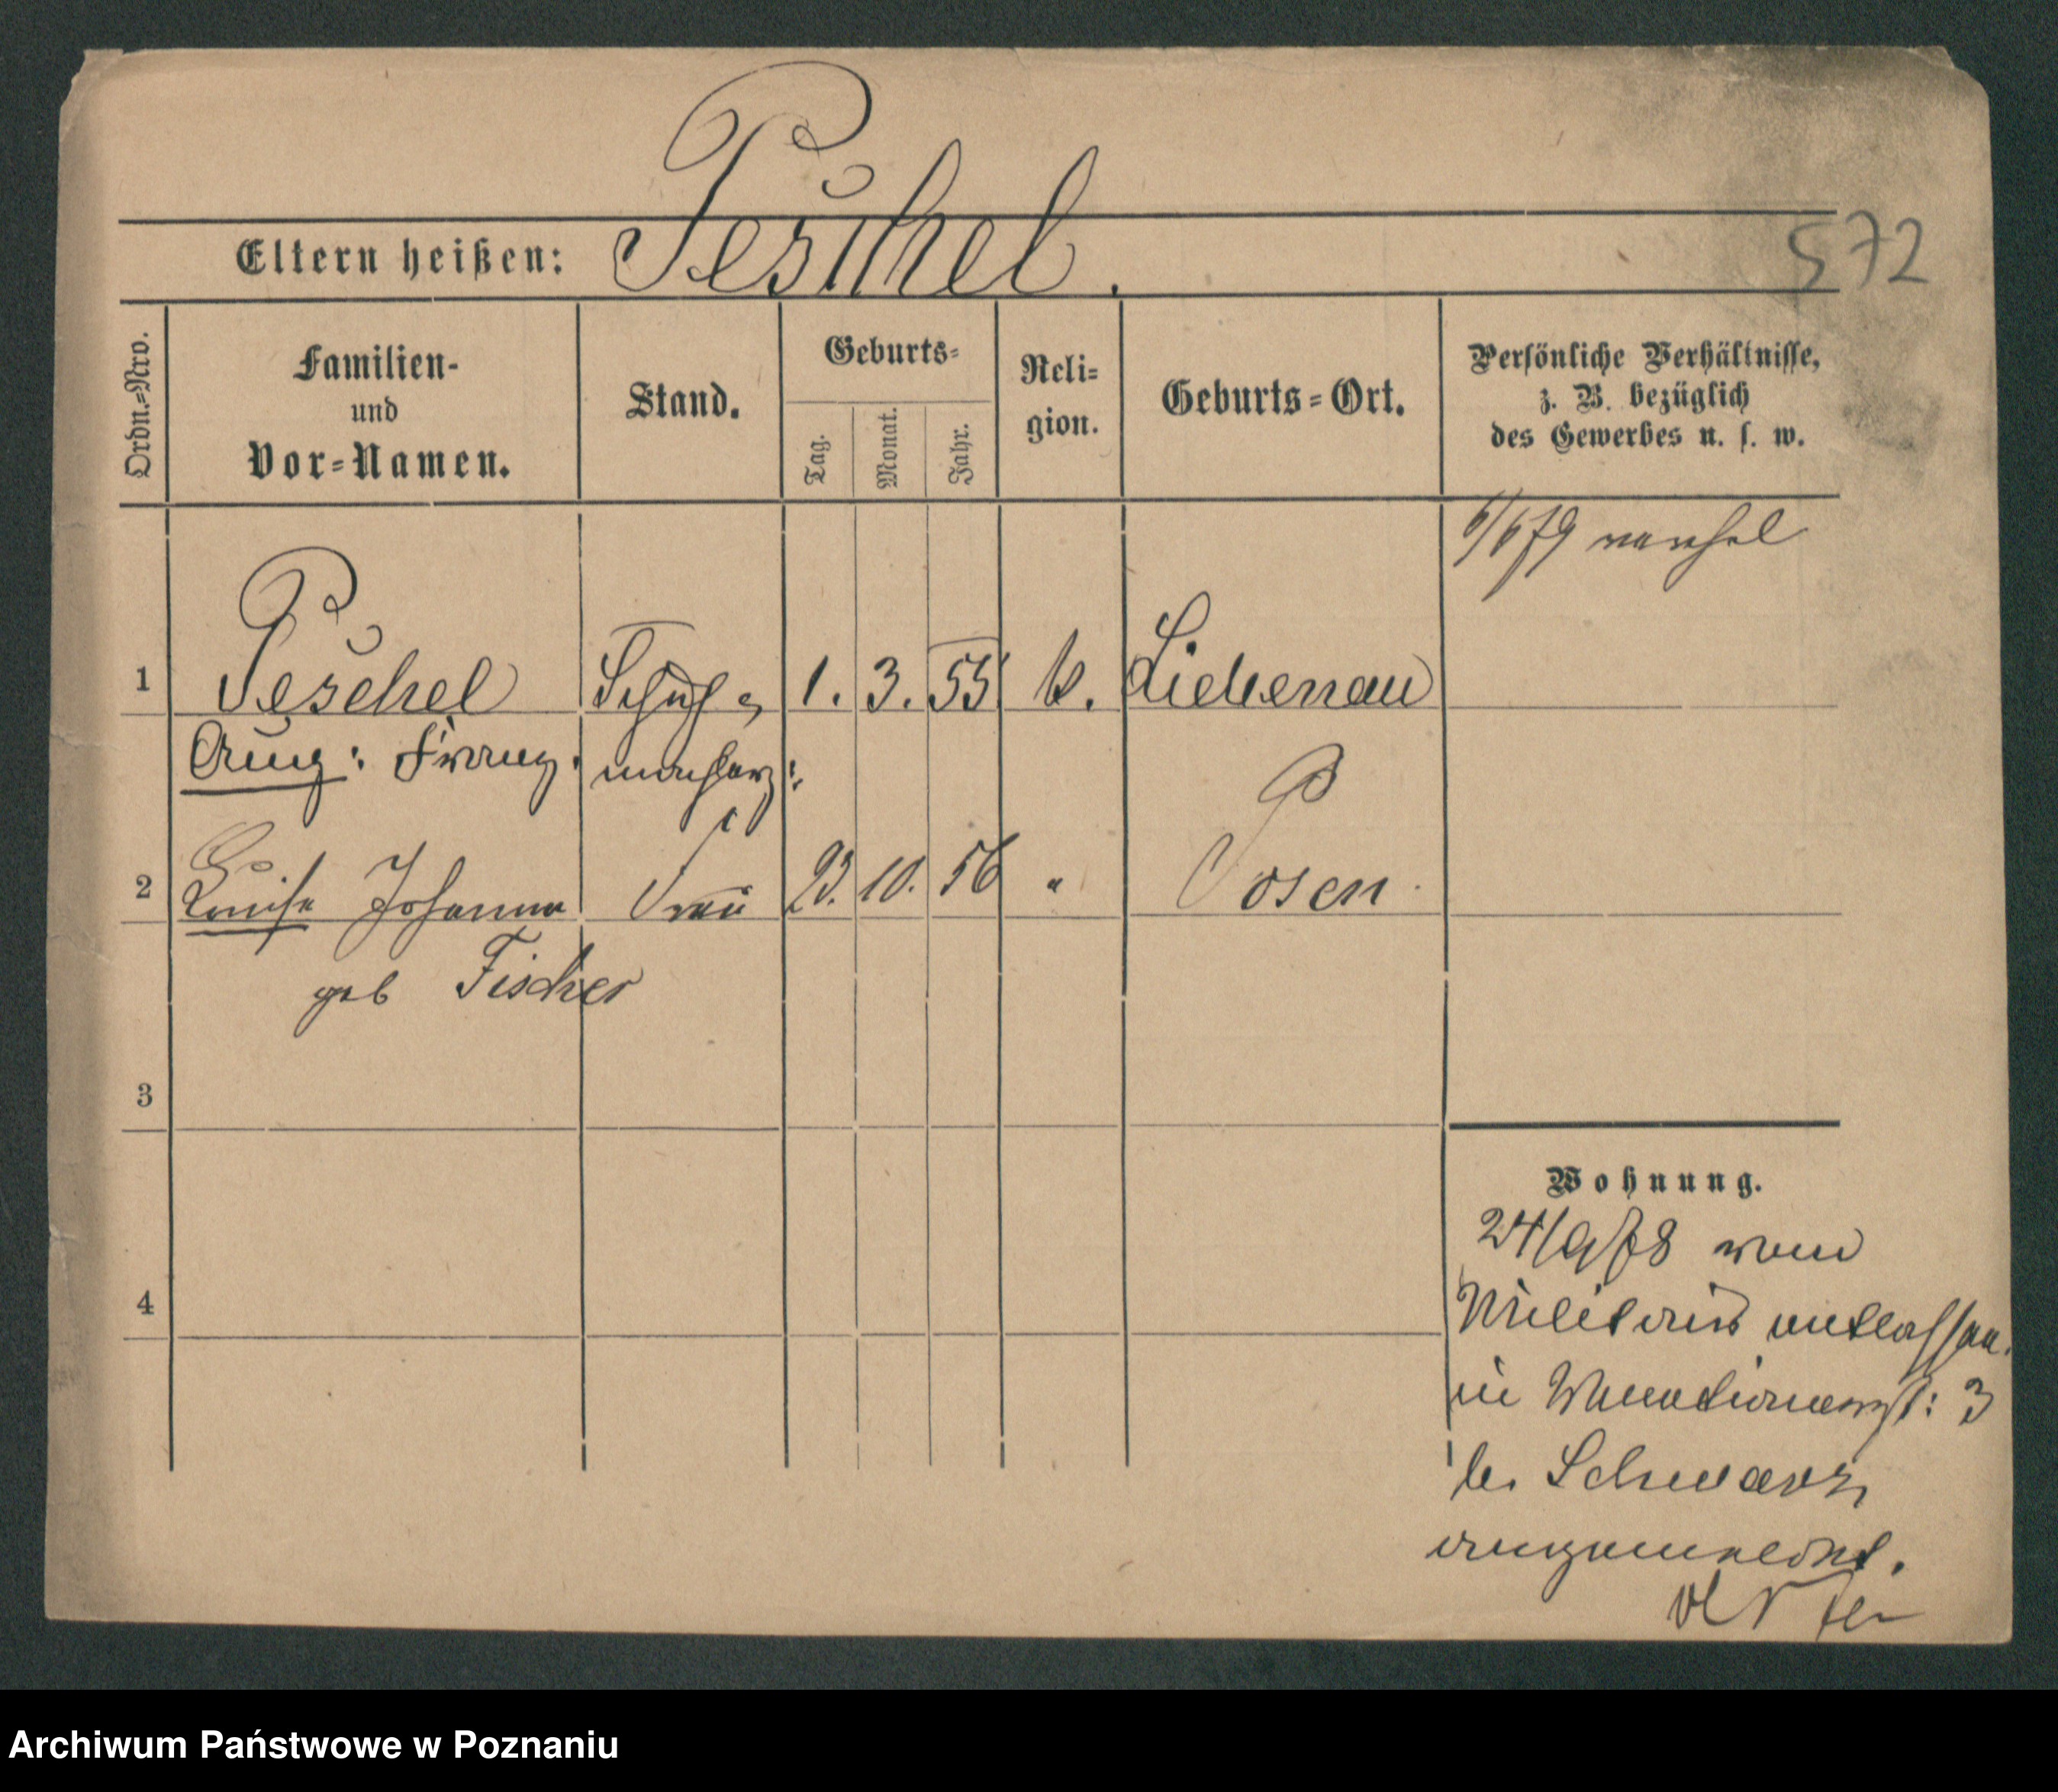 Peschel.
572
Eltern heißen:
Ordn.=Nro.
Familien-
und
Vor=Namen.
Stand.
Geburts=
Tag.
Monat.
Jahr.
Reli=
gion.
Geburts=Ort.
Persönliche Verhältnisse,
z. B. bezüglich
des Gewerbes u. s. w.
6/6 79
1 Peschel Schuh= 1. 3. 55 k. Liebenau
Aug: Franz.
2 Louise Johanna Frau 23. 10. 56 " Posen.
geb Fischer
3
4
Wohnung.
24/9/78 vom
Militair entlassen.
in 3
b. Schwarz
angemeldet.
Archiwum Państwowe w Poznaniu